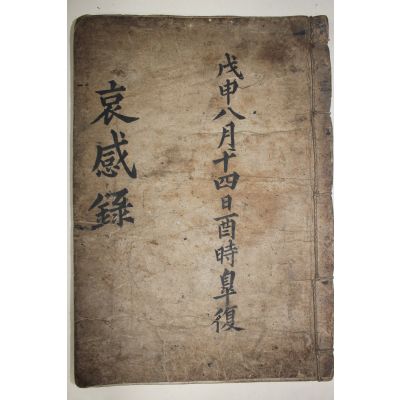 戊申八月十四日酉時皐復
哀感錄